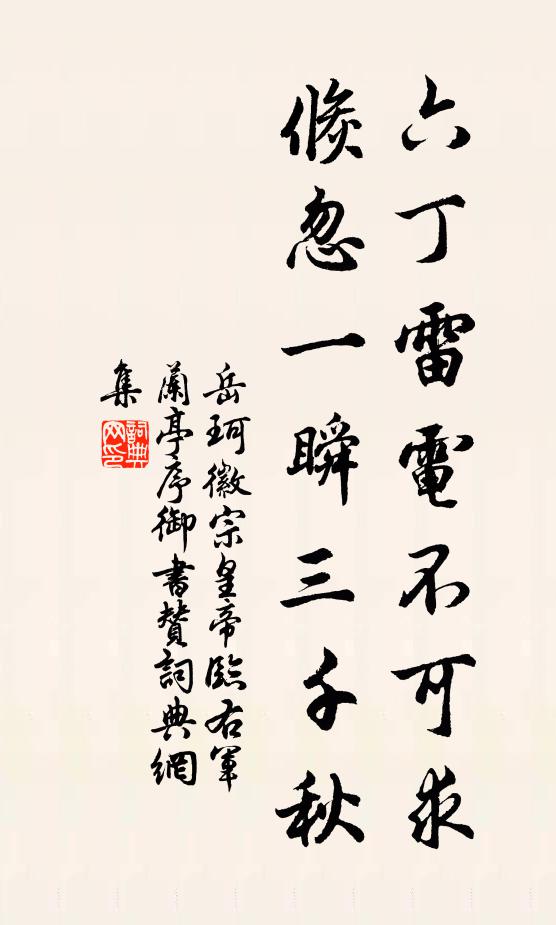 六丁雷電不可求
倐忽一瞬三千秋
岳珂徽宗皇帝臨右軍
蘭亭序御書贊詞典網
集
詞典
网印